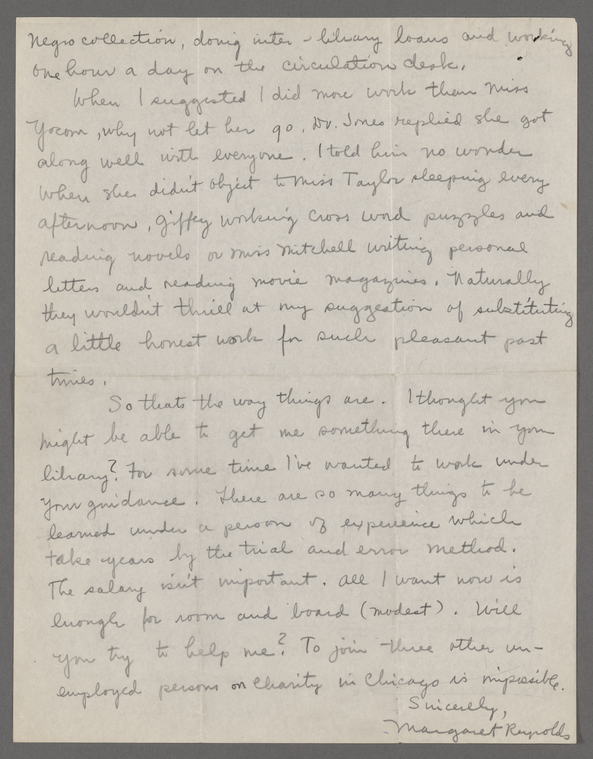 Negro collection, doing inter-library loans and working
one hour a day on the circulation desk.
When I suggested I did more work than Miss
Yocom, why not let her go. Dr. Jones replied she got
along well with everyone. I told him no wonder
when she didn't object to Miss Taylor sleeping every
afternoon, Giffey working cross word puzzles and
reading novels or Miss Mitchell writing personal
letters and reading movie magazines. Naturally
they wouldn't thrill at my suggestion of substituting
a little honest work for such pleasant past
times.
So thats the way things are. I thought you
might be able to get me something there in your
library? For some time I've wanted to work under
your guidance. There are so many things to be
learned under a person of experience which
take years by the trial and error method.
The salary isn't important. All I want now is
enough for room and board (modest). Will
you try to help me? To join three other un-
employed persons on charity in Chicago is impossible.
Sincerely,
Margaret Reynolds